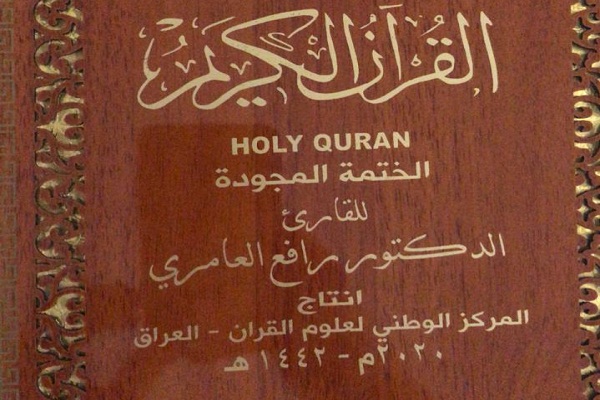 القرآن الكريم
HOLY QURAN
الختمة المجودة
للقارئ
الدكتور رافع العامري
انتاج
المركز الوطني لعلوم القران - العراق
٢٠٢٠م - ١٤٤٢ هـ